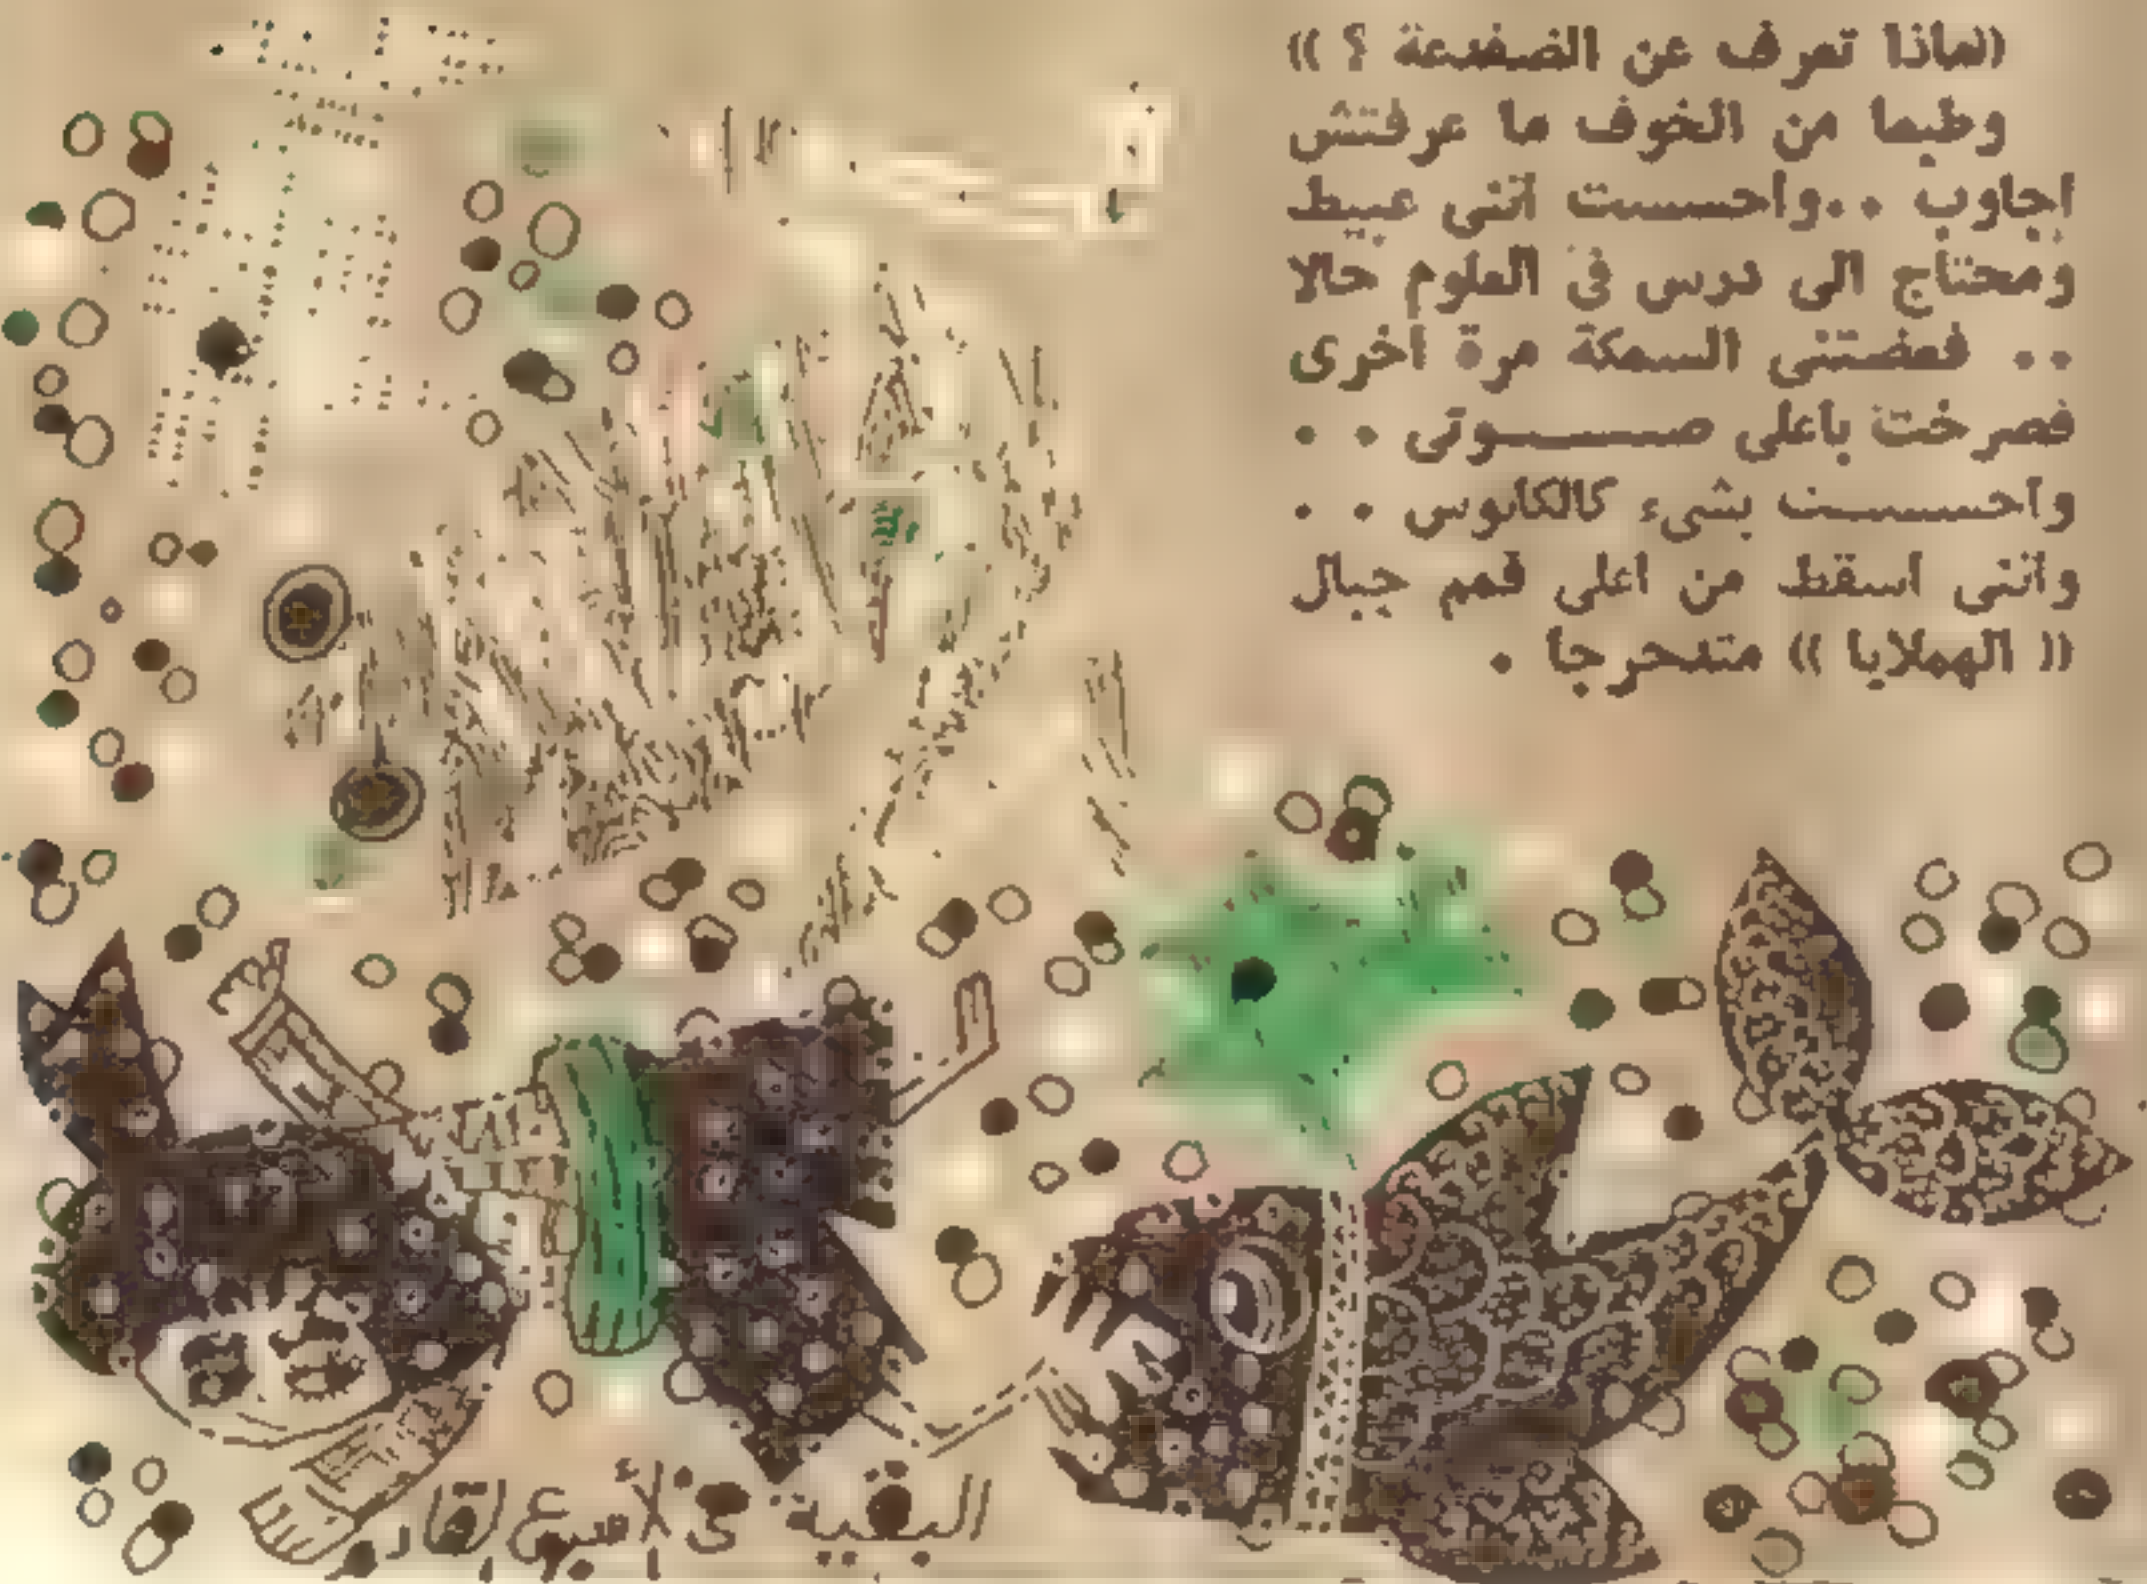 ((ماذا تعرف عن الضفدعة ؟ ))
وطبعا من الخوف ما عرفتش
اجاوب ٠٠واحسست اننى عبيط
ومحتاج الى درس فى العلوم حالا
٠٠ فعضتنى السمكة مرة اخرى
فصرخت بأعلى صوتى ٠٠
واحسست بشىء كالكابوس ٠٠
وأننى اسقط من اعلى قمم جبال
(( الهملايا )) متدحرجا ٠
البقية